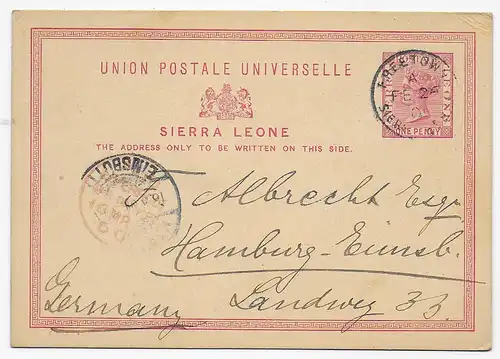 UNION POSTALE UNIVERSELLE
SIERRA LEONE
THE ADDRESS ONLY TO BE WRITTEN ON THIS SIDE.
FREETOWN
A
FE 24
SIERRA LEONE
ONE PENNY
EIMSBÜTTEL
Albrecht Esqr
Hamburg-Eimsb.
Landweg 33.
Germany